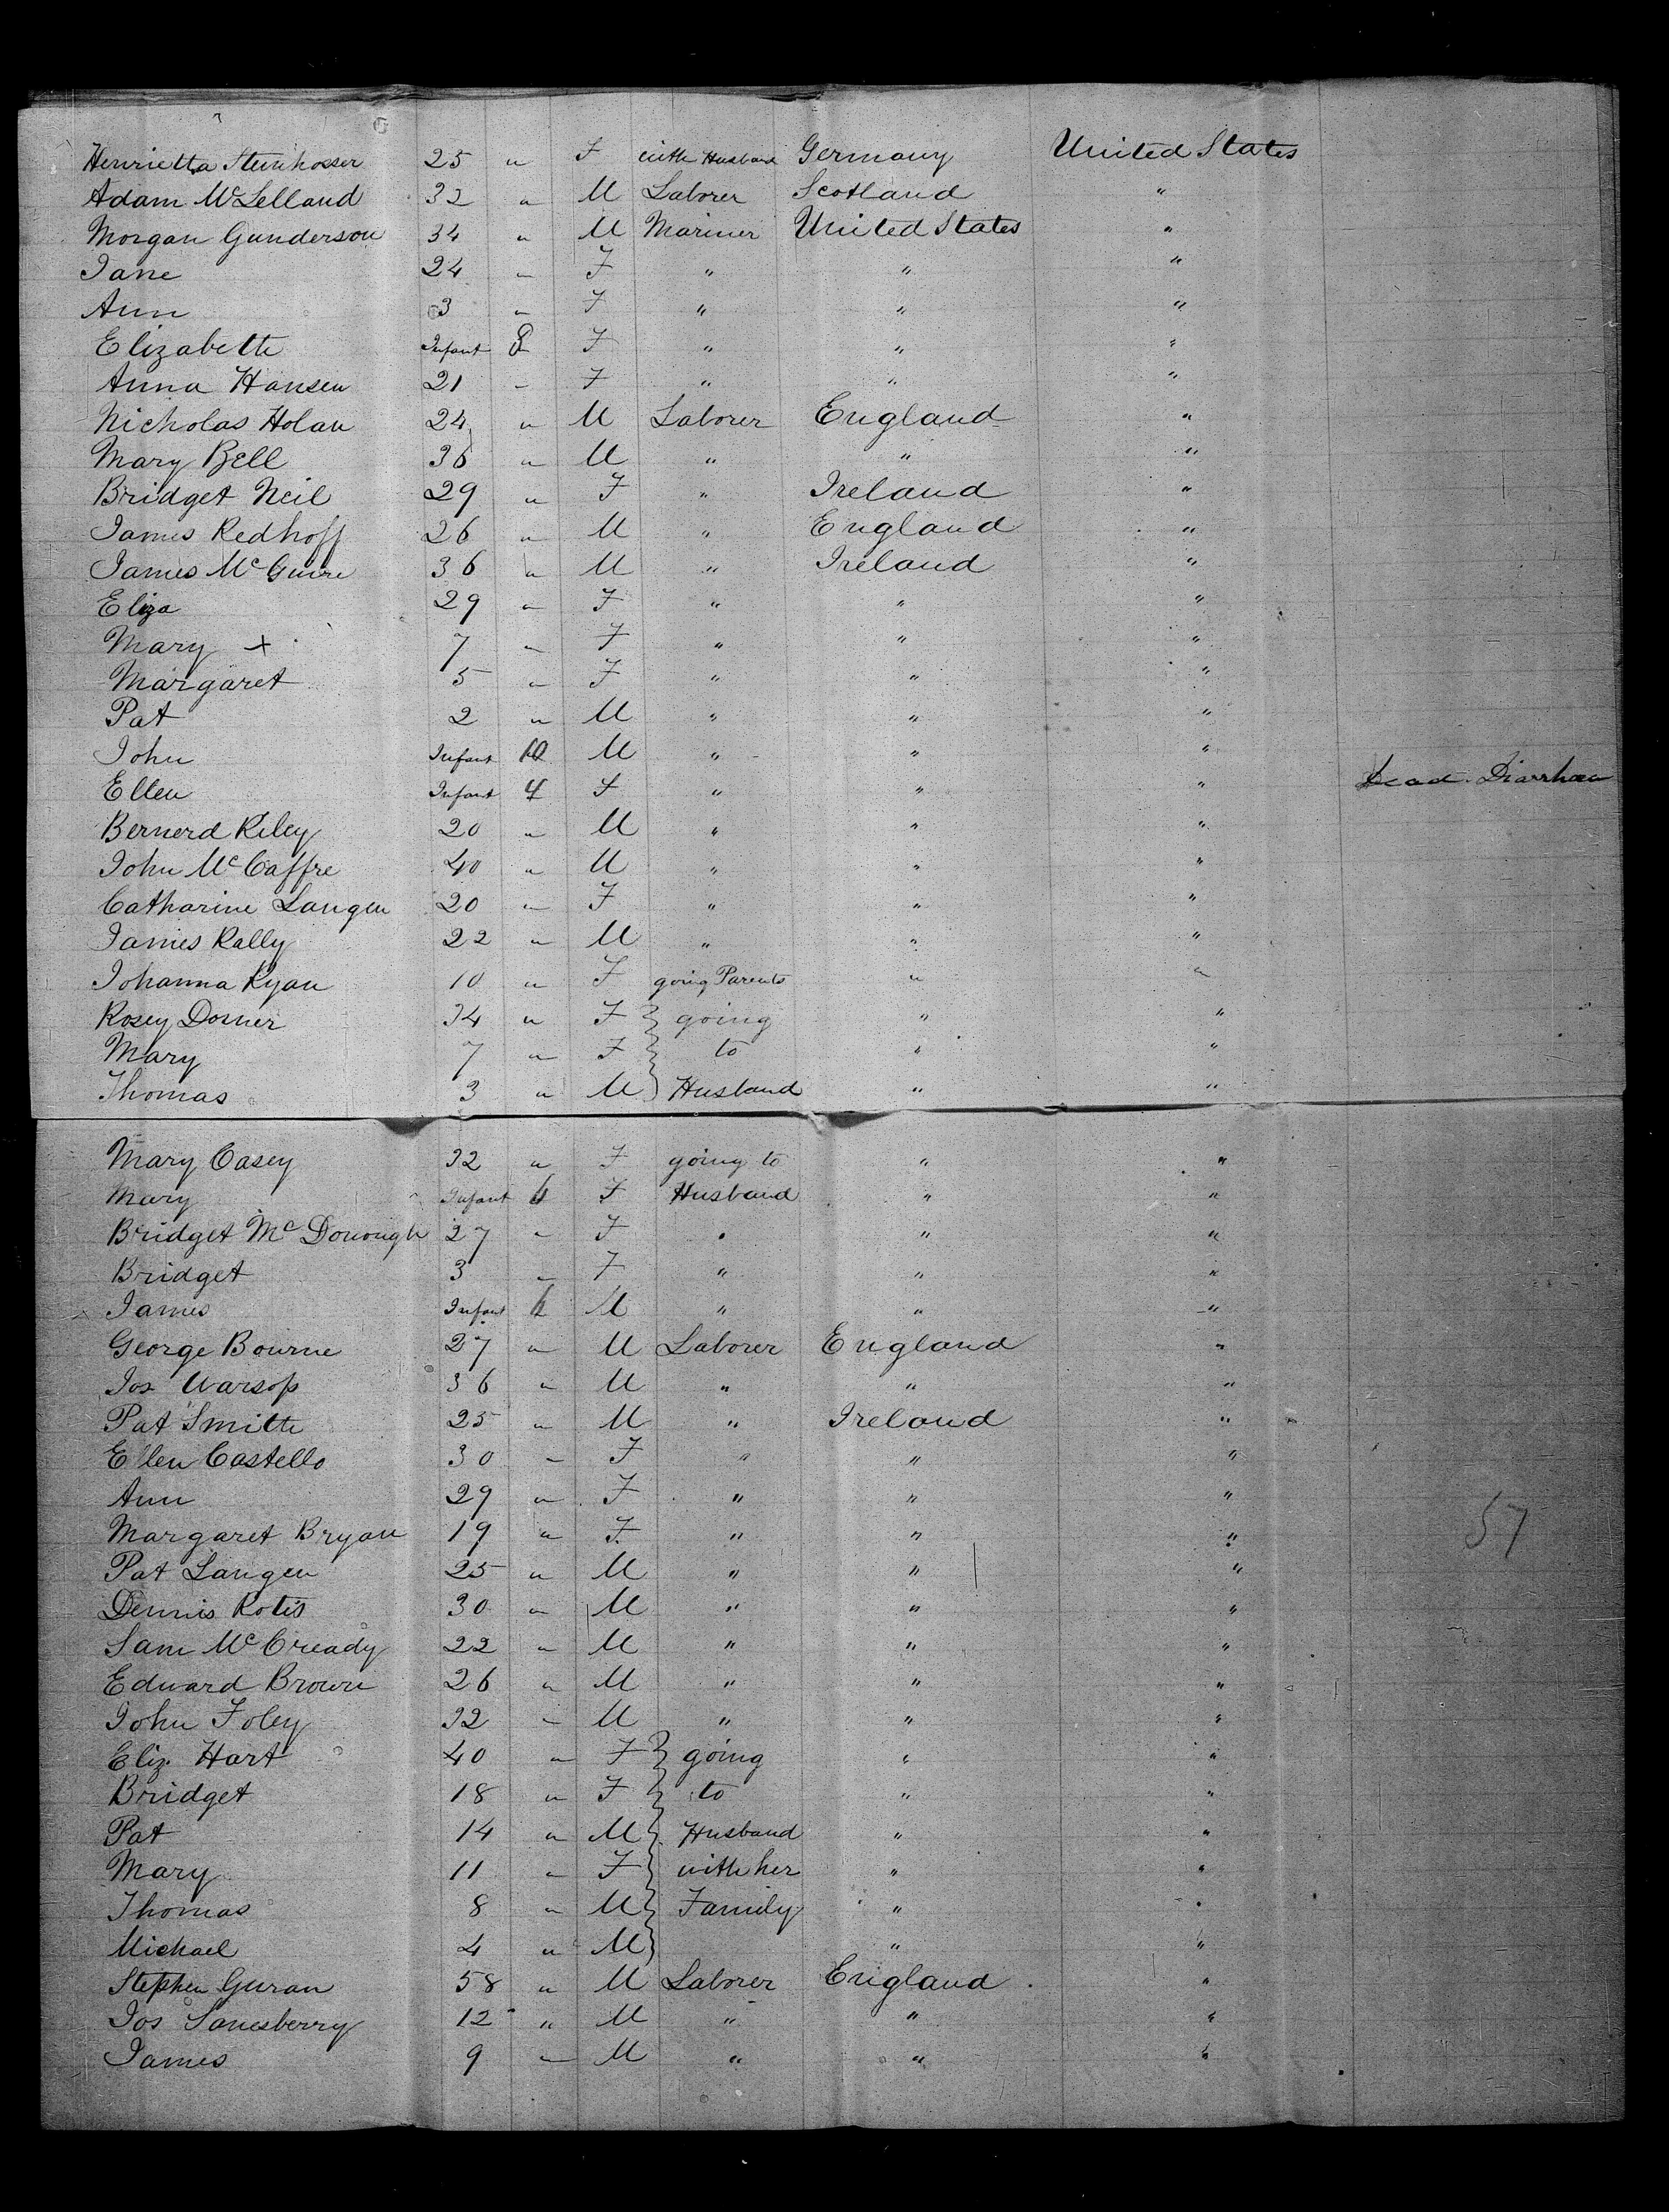 Henrietta Steinhosser 25 " F with Husband Germany United States
Adam McLelland 32 " M Laborer Scotland "
Morgan Gunderson 34 " M Mariner United States "
Jane 24 " F " " "
Ann 3 " F " " "
Elizabeth Infant 8 F " " "
Anna Hansen 21 " F " " "
Nicholas Holan 24 " M Laborer England "
Mary Bell 36 " M " " "
Bridget Neil 29 " F " Ireland "
James Redhoff 26 " M " England "
James McGuire 36 " M " Ireland "
Eliza 29 " F " " "
Mary x 7 " F " " "
Margaret 5 " F " " "
Pat 2 " M " " "
John Infant 10 M " " "
Ellen Infant 4 F " " " Dead. Diarrhoea
Bernerd Riley 20 " M " " "
John McCaffre 40 " M " " "
Catharine Langen 20 " F " " "
James Rally 22 " M " " "
Johanna Ryan 10 " F going Parents " "
Rosey Dorner 34 " F going " "
Mary 7 " F to " "
Thomas 3 " M Husband " "
Mary Casey 32 " F going to " "
Mary Infant 6 F Husband " "
Bridget McDonough 27 " F " " "
Bridget 3 " F " " "
James Infant 6 M " " "
George Bourne 27 " M Laborer England "
Jos Warsop 36 " M " " "
Pat Smith 25 " M " Ireland "
Ellen Costello 30 " F " " "
Ann 29 " F " " "
Margaret Bryan 19 " F " " "
57
Pat Langen 25 " M " " "
Dennis Rotis 30 " M " " "
Sam McCready 22 " M " " "
Edward Brown 26 " M " " "
John Foley 32 " M " " "
Eliz. Hart 40 " F going " "
Bridget 18 " F to " "
Pat 14 " M Husband " "
Mary 11 " F with her " "
Thomas 8 " M Family " "
Michael 4 " M " "
Stephen Guran 58 " M Laborer England "
Jos Sanesberry 12 " M " " "
James 9 " M " " "